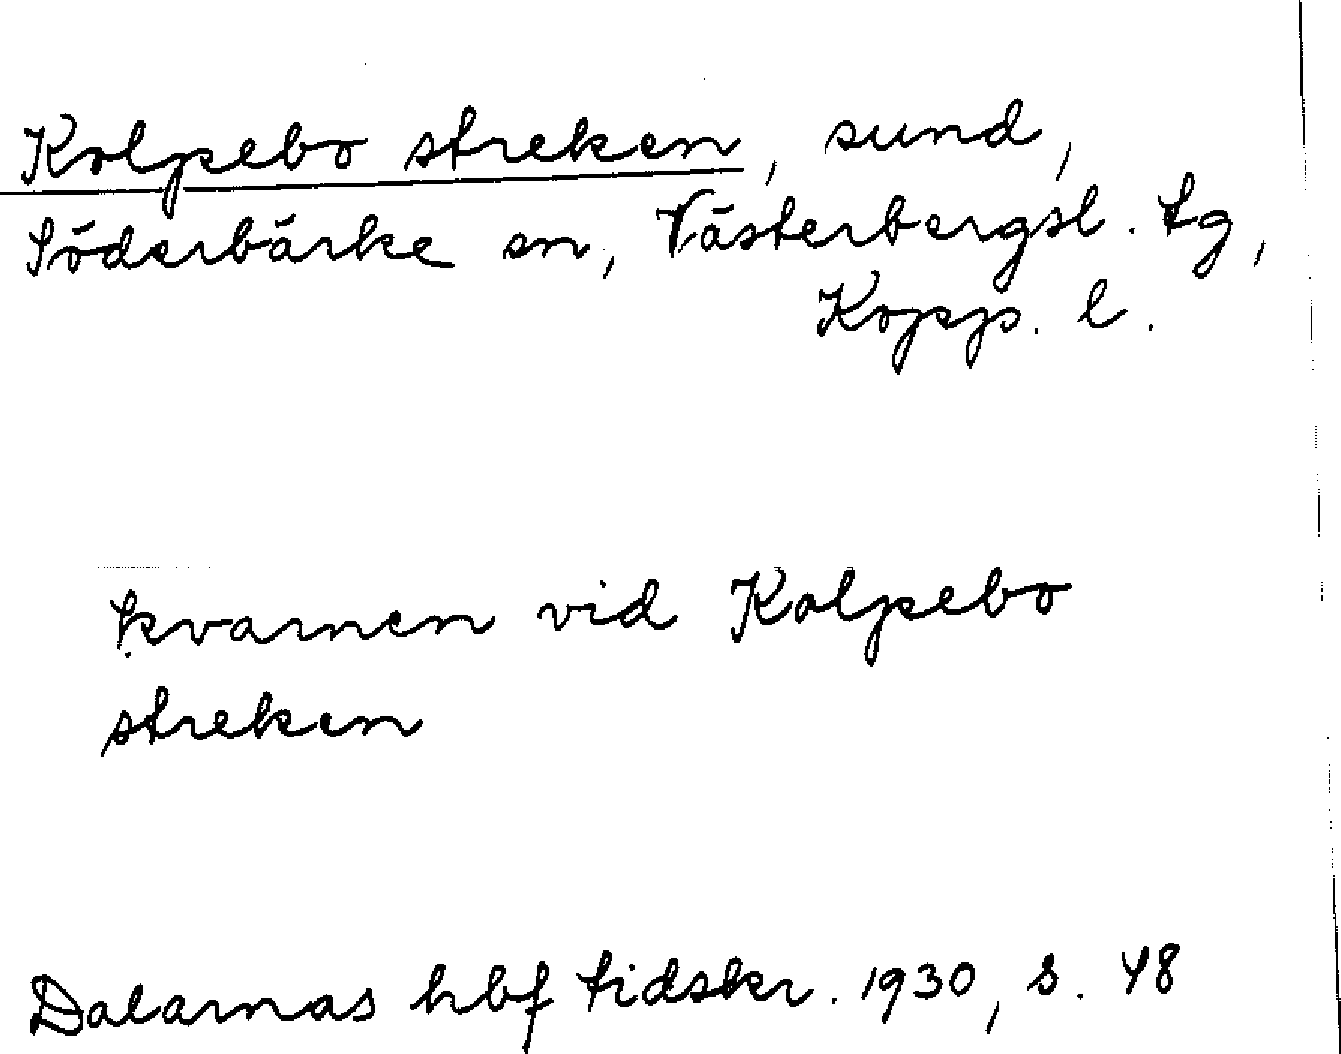 Kolpebo streken, sund,
Söderbärke sn, Västerbergsl. tg,
Kopp. l.
kvarnen vid Kolpebo
streken
Dalarnas hbf tidskr. 1930, s. 48